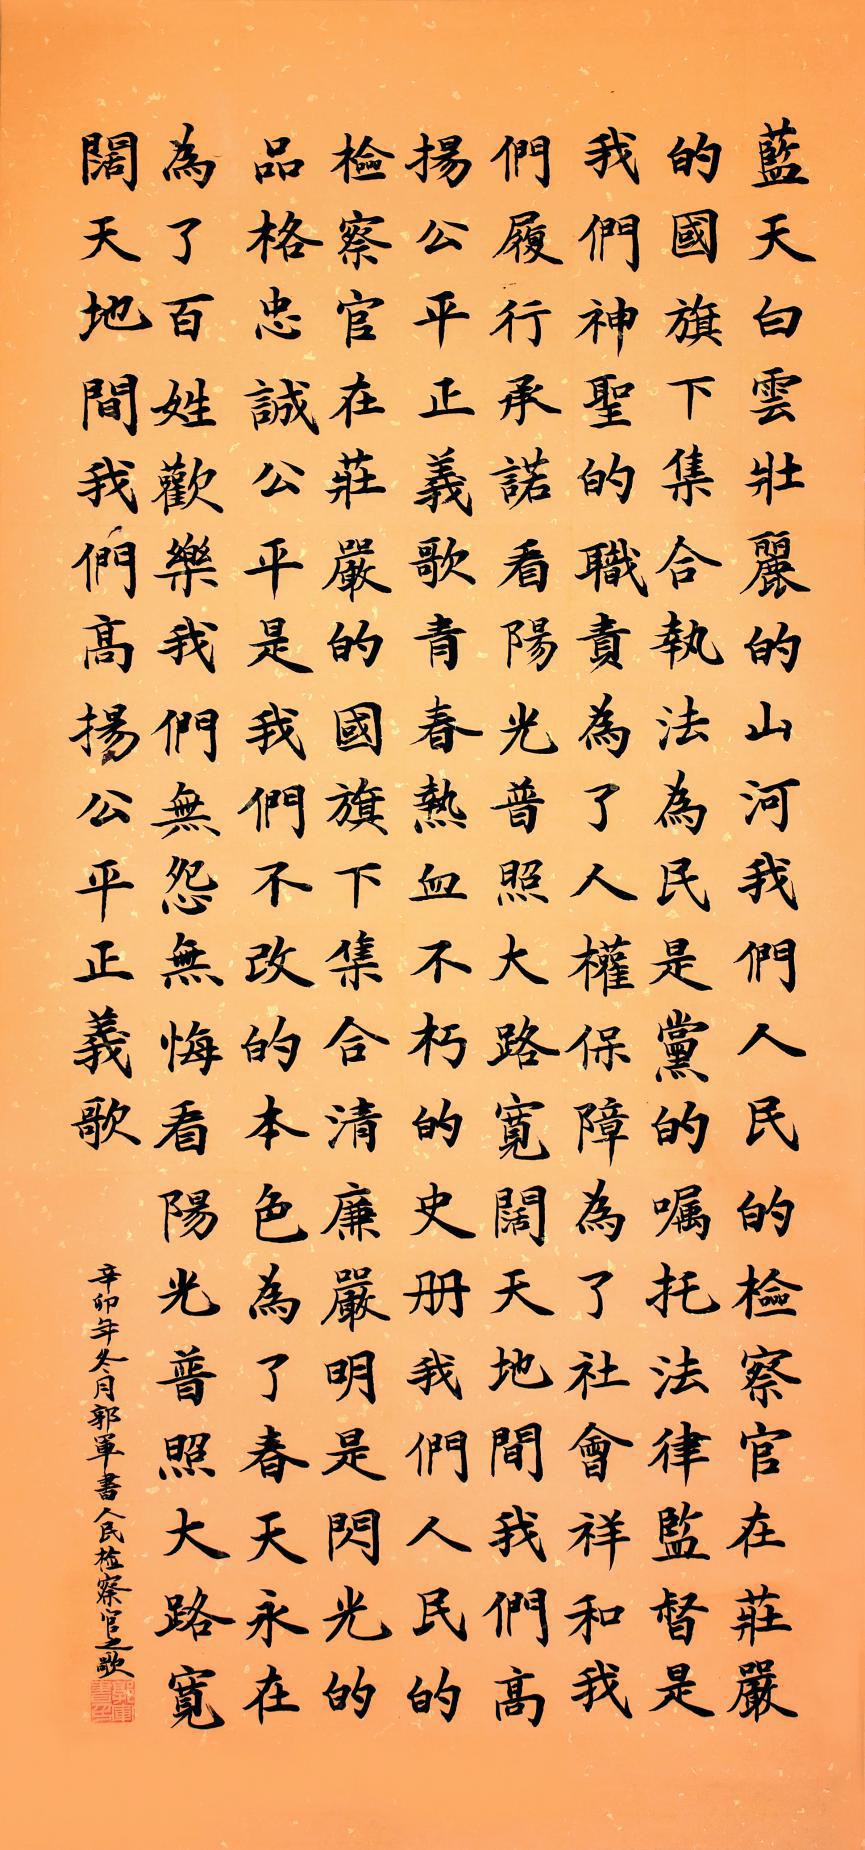 藍天白雲壯麗的山河我們人民的檢察官在莊嚴
的國旗下集合執法為民是黨的嘱托法律監督是
我們神聖的職責為了人權保障為了社會祥和我
們履行承諾看陽光普照大路寬闊天地間我們高
揚公平正義歌青春熱血不朽的史册我們人民的
檢察官在莊嚴的國旗下集合清廉嚴明是閃光的
品格忠誠公平是我們不改的本色為了春天永在
為了百姓歡樂我們無怨無悔看陽光普照大路寬
闊天地間我們高揚公平正義歌
辛卯年冬月郭軍書人民檢察官之歌